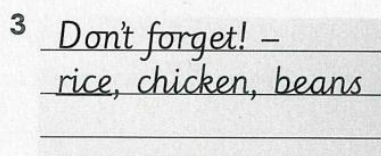 3 Don't forget! –
rice, chicken, beans